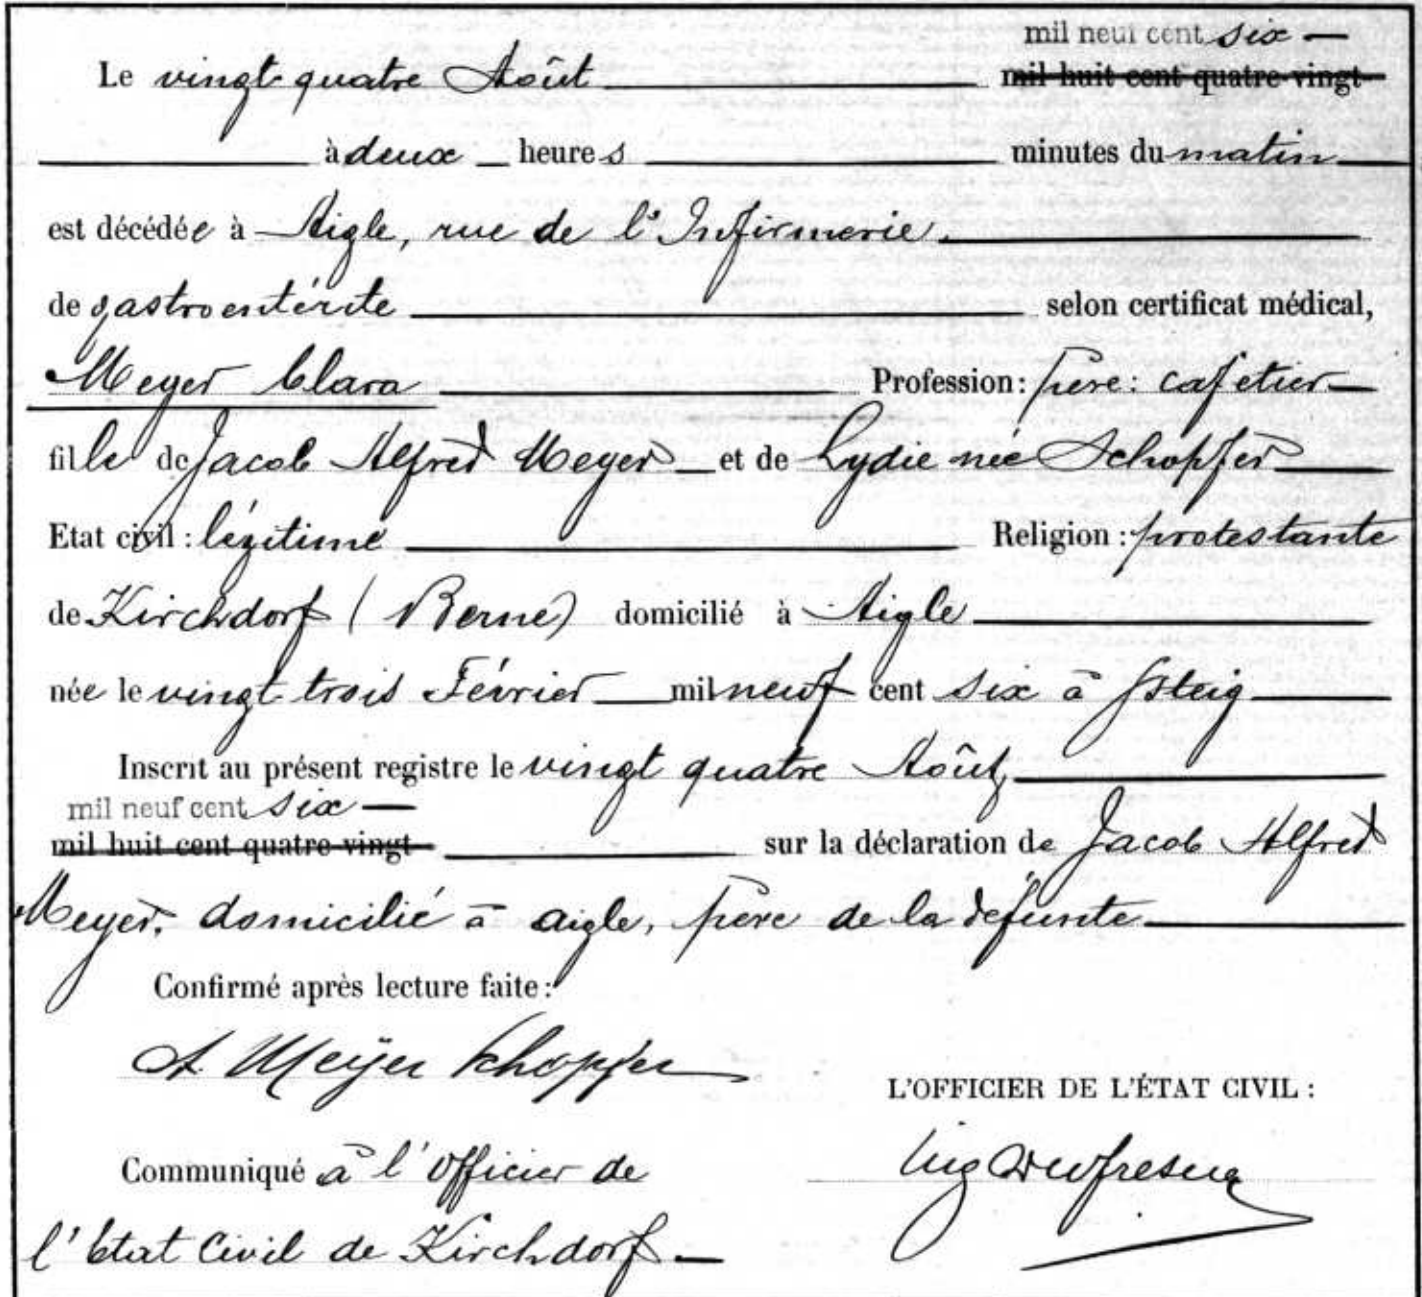 mil neuf cent six —
Le vingt quatre Août mil huit cent quatre-vingt
à deux heures minutes du matin
est décédée à Aigle, rue de l'Infirmerie.
de gastroentérite selon certificat médical,
Meyer Clara Profession: père: cafetier —
fille de Jacob Alfred Meyer et de Lydie née Schopfer
Etat civil: légitime Religion: protestante
de Kirchdorf (Berne) domicilié à Aigle
née le vingt trois Février mil neuf cent six à Gsteig
Inscrit au présent registre le vingt quatre Août,
mil neuf cent six —
mil huit cent quatre-vingt sur la déclaration de Jacob Alfred
Meyer, domicilié à aigle, père de la défunte
Confirmé après lecture faite:
A. Meÿer Schopfer
L'OFFICIER DE L'ÉTAT CIVIL:
Communiqué à l'Officier de Dufresne
l'Etat Civil de Kirchdorf —